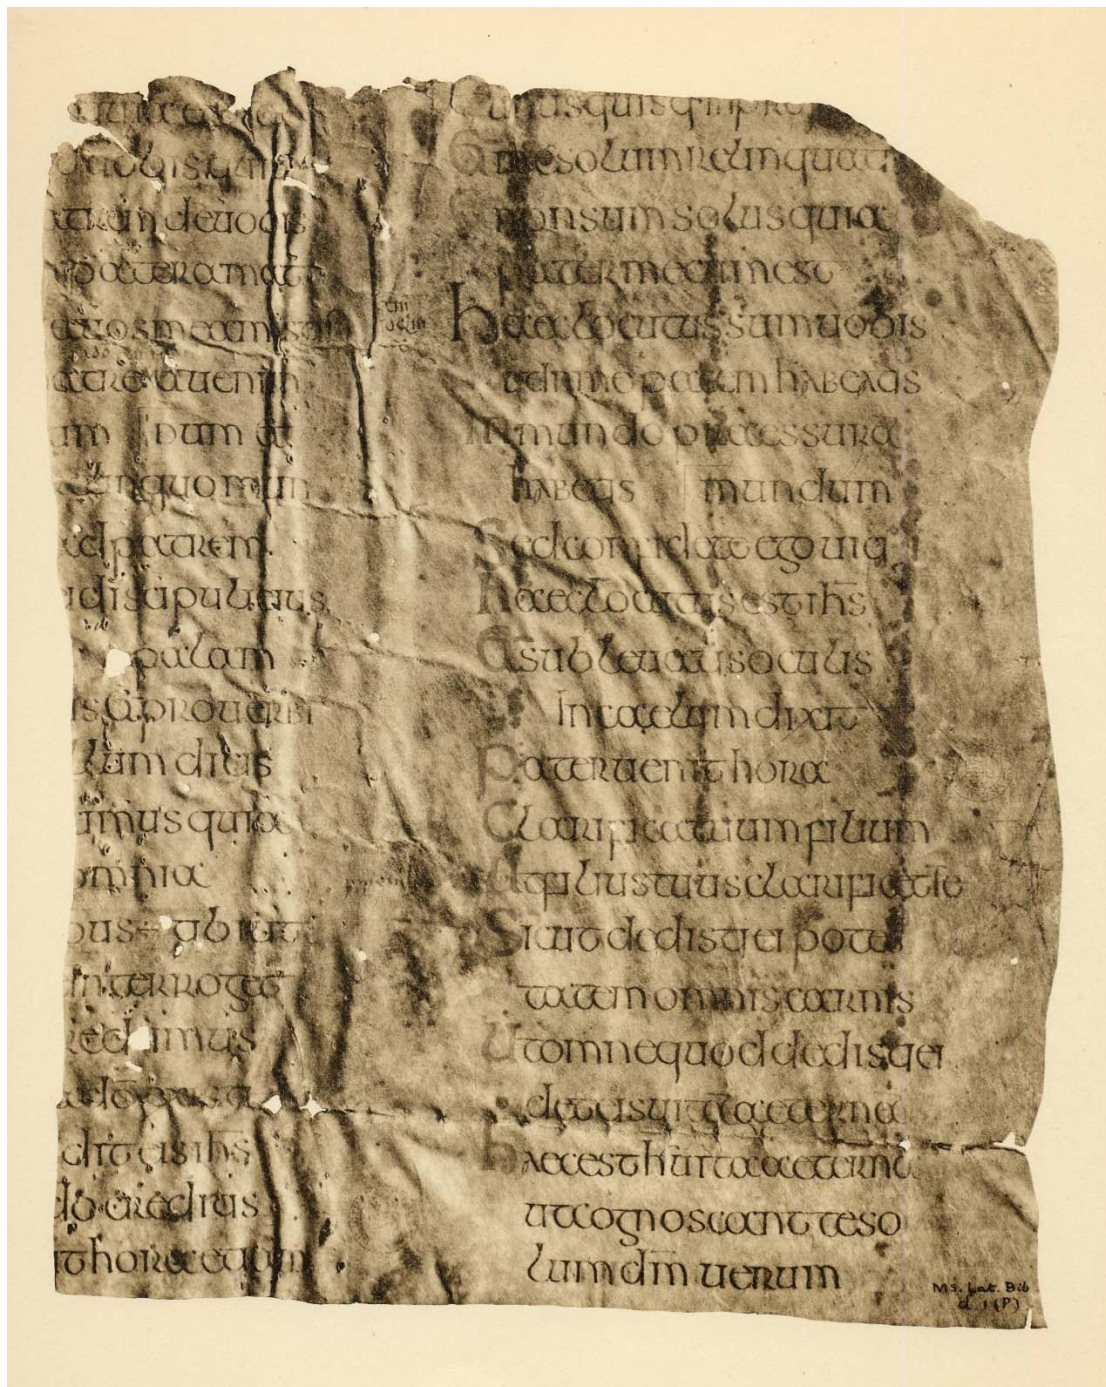 uobis quia
atrem de uobis
pater amat
uos me amastis
atre et ueni in
um dum et
linquo mun
ad patrem
discipuli eius
palam
is & prouerbi
lum dicis
imus quia
omnia
pus ÷ tibi ut
interroget
redimus
a dō existi
dit eis ihs̄
do creditis
it hora et iam
Unusquisq· in pro
Et me solum relinquati
Et non sum solus quia
pater mecum est
Haec locutus sum uobis
ut in me pacem habeatis
In mundo praessura
habetis mundum
Sed confidete ego uici
Haec locutus est ihs̄
Et subleuatis oculis
In caelum dixit
Pater uenit hora
Clarifica tuum filium
Ut filius tuus clarificet te
Sicut dedisti ei potes
tatem omnis carnis
Ut omne quod dedisti ei
det eis uitā aeterna
Haec est h̄ uita aeterna
ut cognoscant te so
lum dm̄ uerum
Ms. Lat. Bib
d. 1 (P)